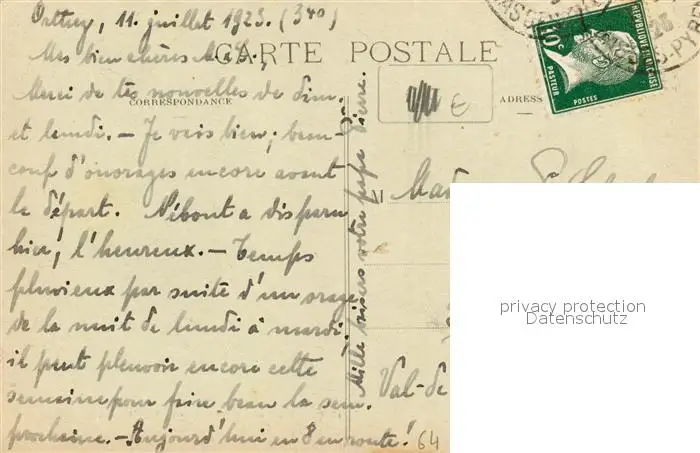 Orthez, 11 juillet 1923. (34º)
CARTE POSTALE
Mes bien chères M. A.,
Merci de tes nouvelles de dim.
CORRESPONDANCE
ADRESSE
et lundi. – Je vais bien; beau-
coup d'ouvrages encore avant
le départ. Nébout a disparu
hier, l'heureux. – Temps
pluvieux par suite d'un orage
de la nuit de lundi à mardi.
il peut pleuvoir encore cette
semaine pour faire beau la sem.
prochaine. – Aujourd'hui en 8 en route!
Mille baisers votre papa Pierre.
M
Val-de
64
€
10c
REPUBLIQUE FRANÇAISE
PASTEUR
POSTES
privacy protection
Datenschutz